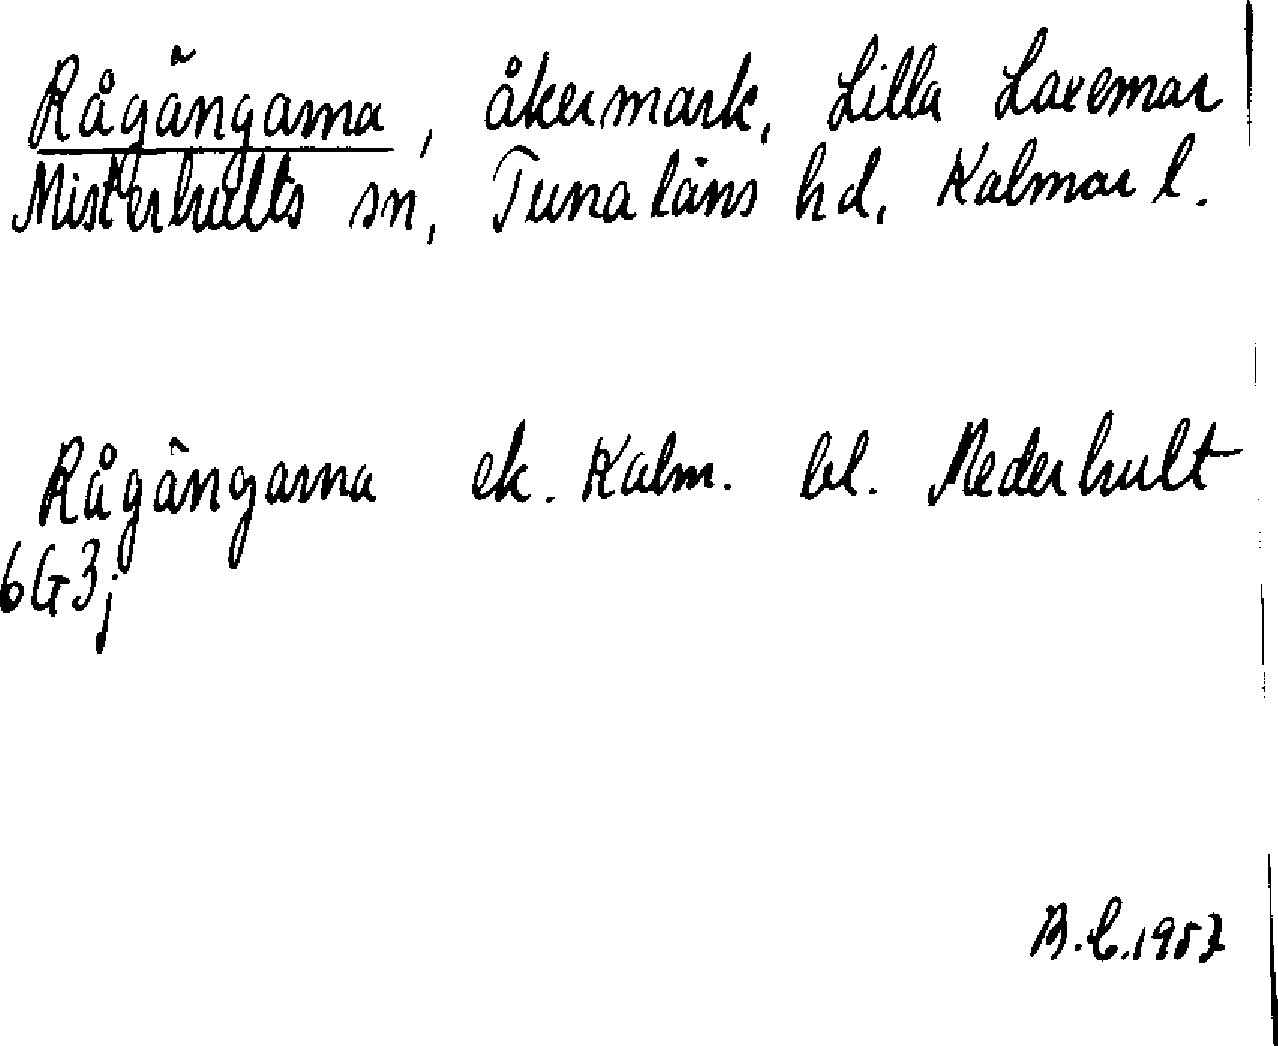 Rågångarna, åkermark, Lilla Laxemar
Misterhults sn, Tunaläns hd, Kalmar l.
Rågångarna ek. Kalm. bl. Mederhult
6G3j
B.C. 1957